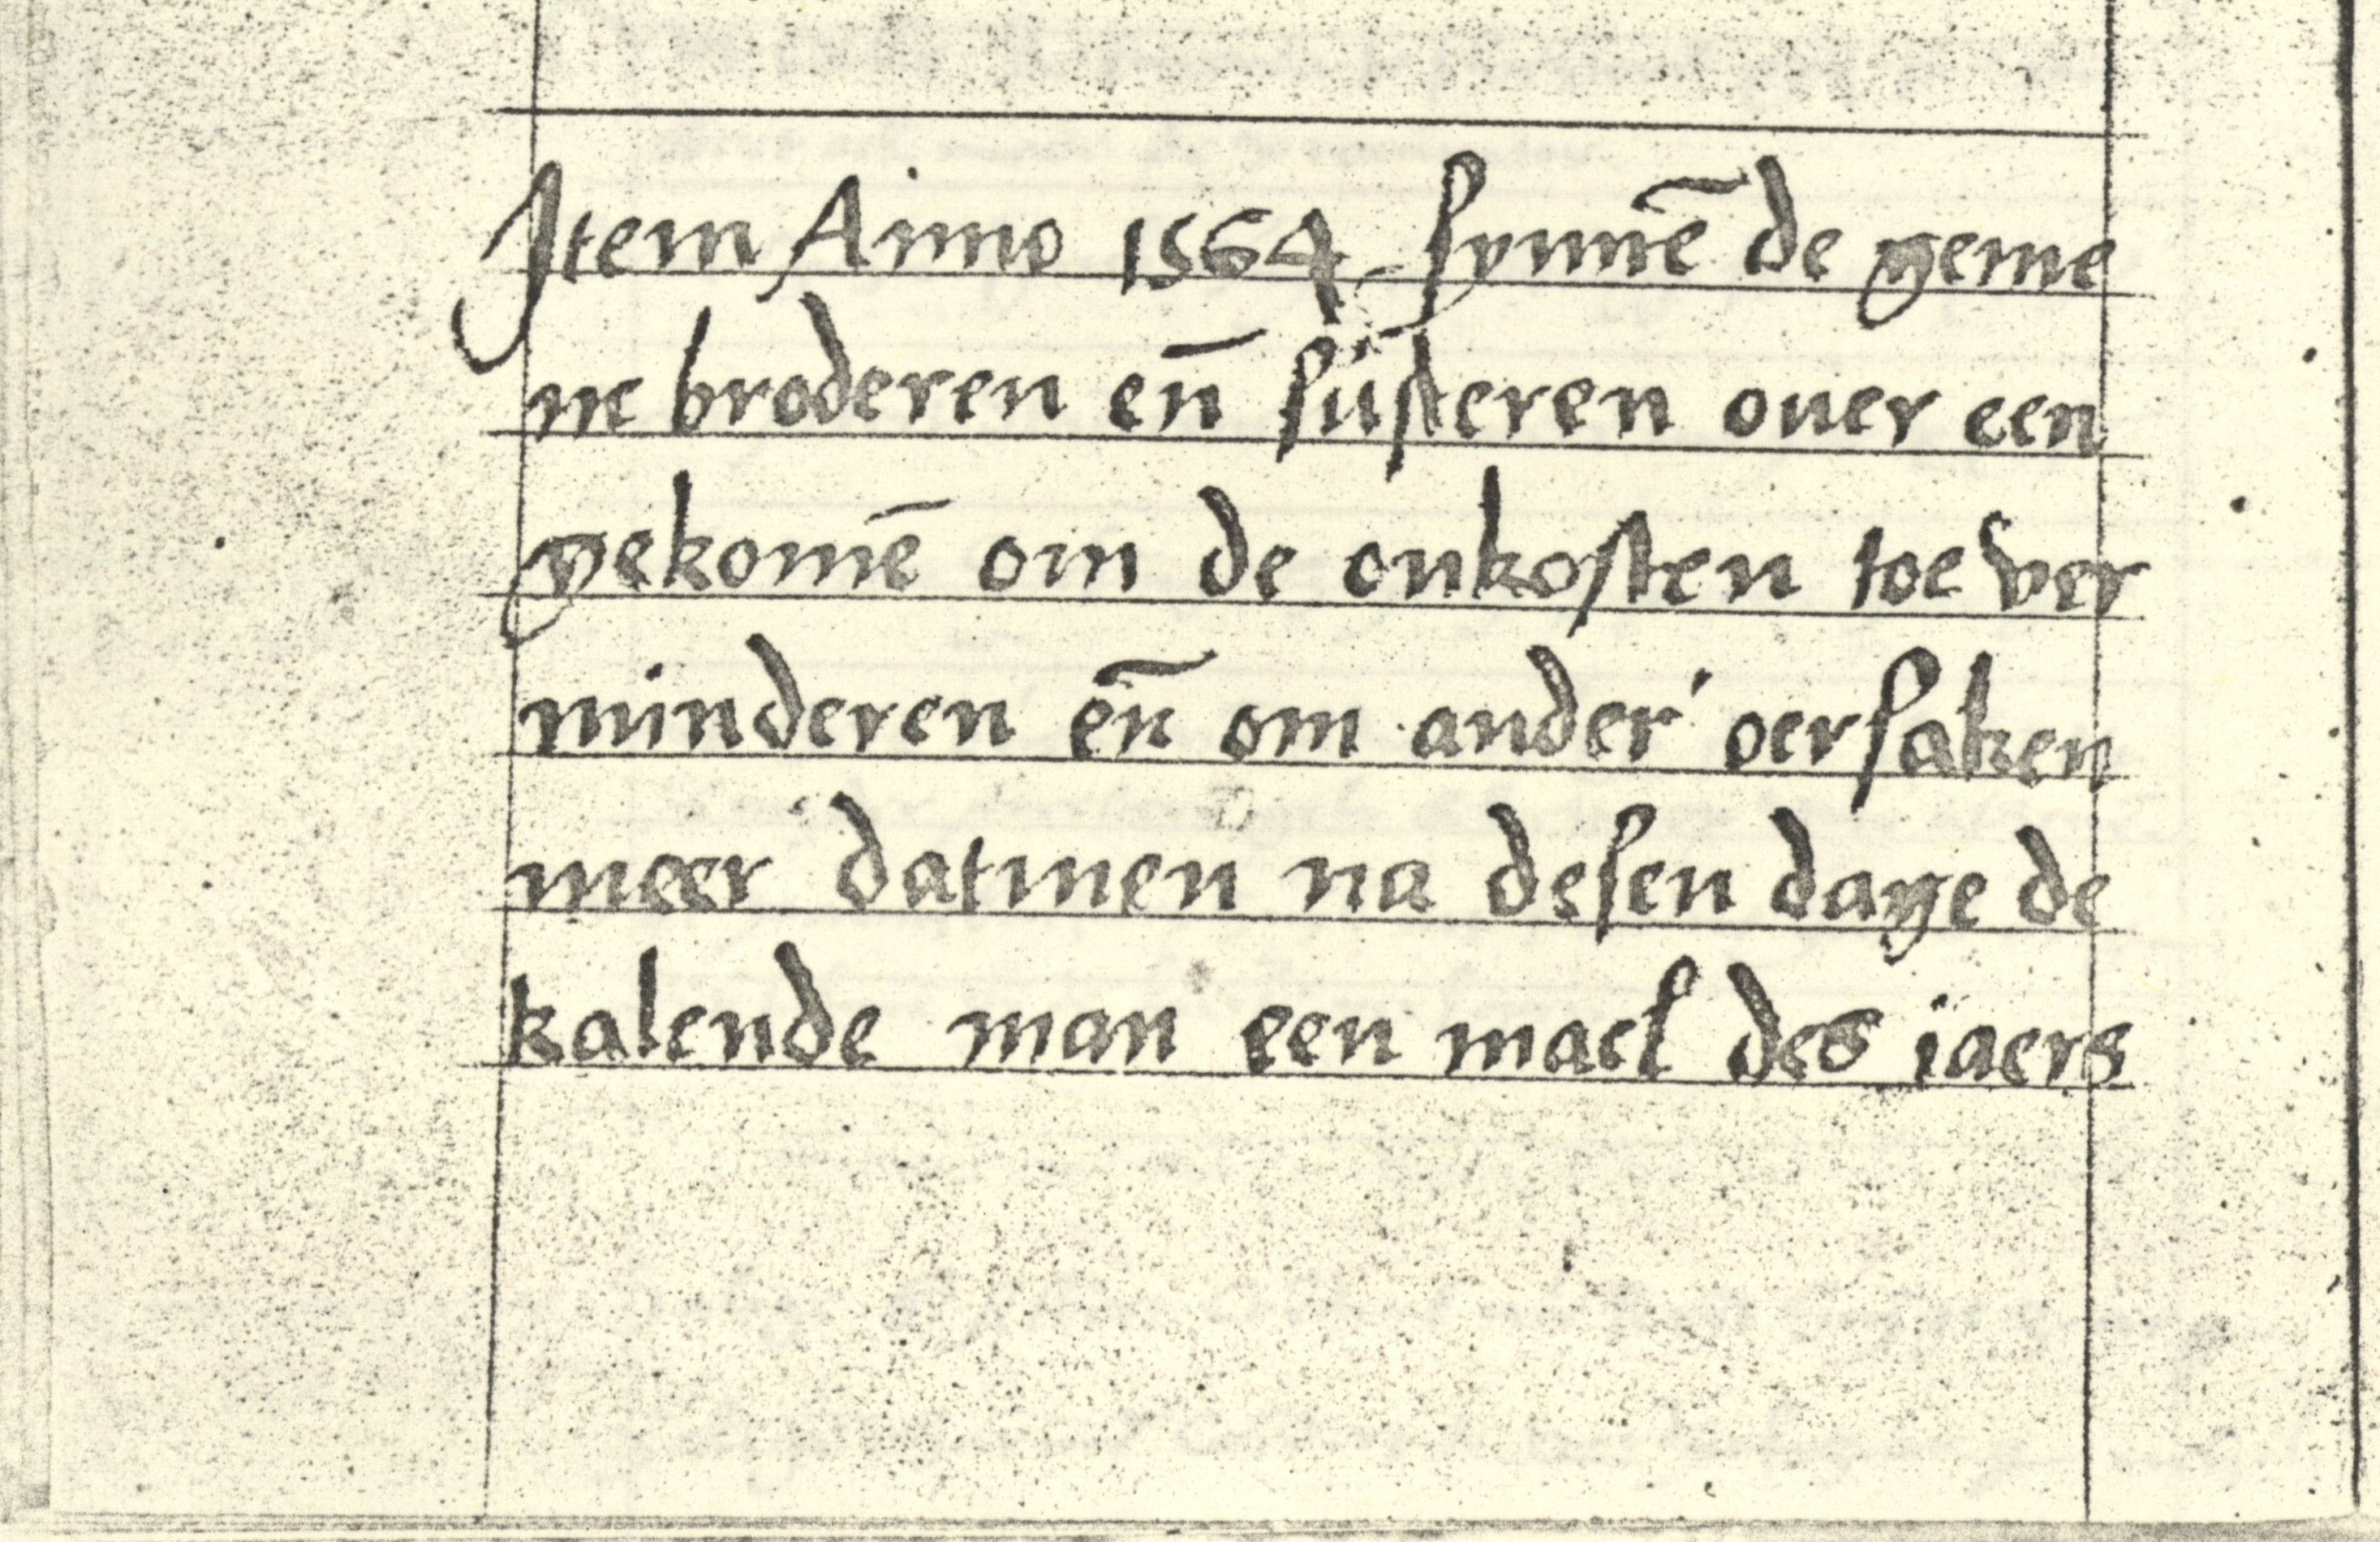 Jtem Anno 1564 synnē de geme
ne broderen en̄ süsteren ouer een
gekomē om de onkosten toe ver
minderen en̄ om ander' oersaken
meer datmen na desen dage de
kalende man een mael des iaers